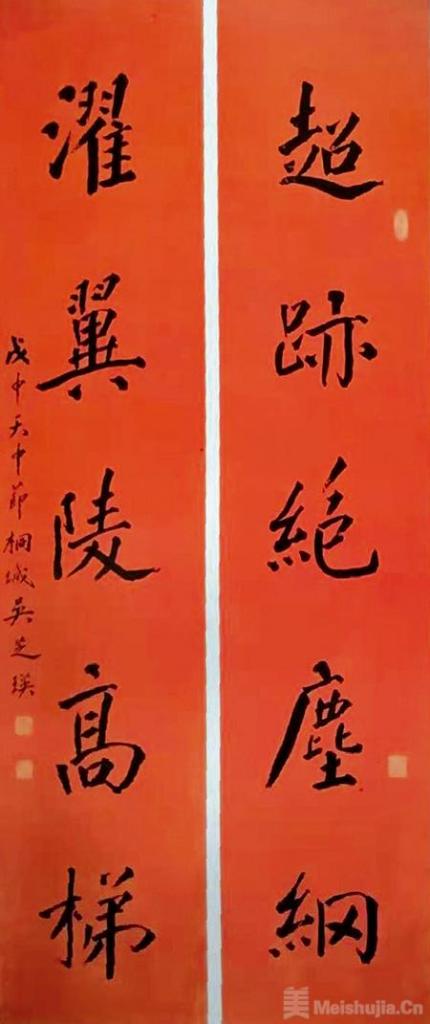 超跡絕塵網
濯翼陵高梯
戊申天中節桐城吳芝瑛
美 Meishujia.Cn